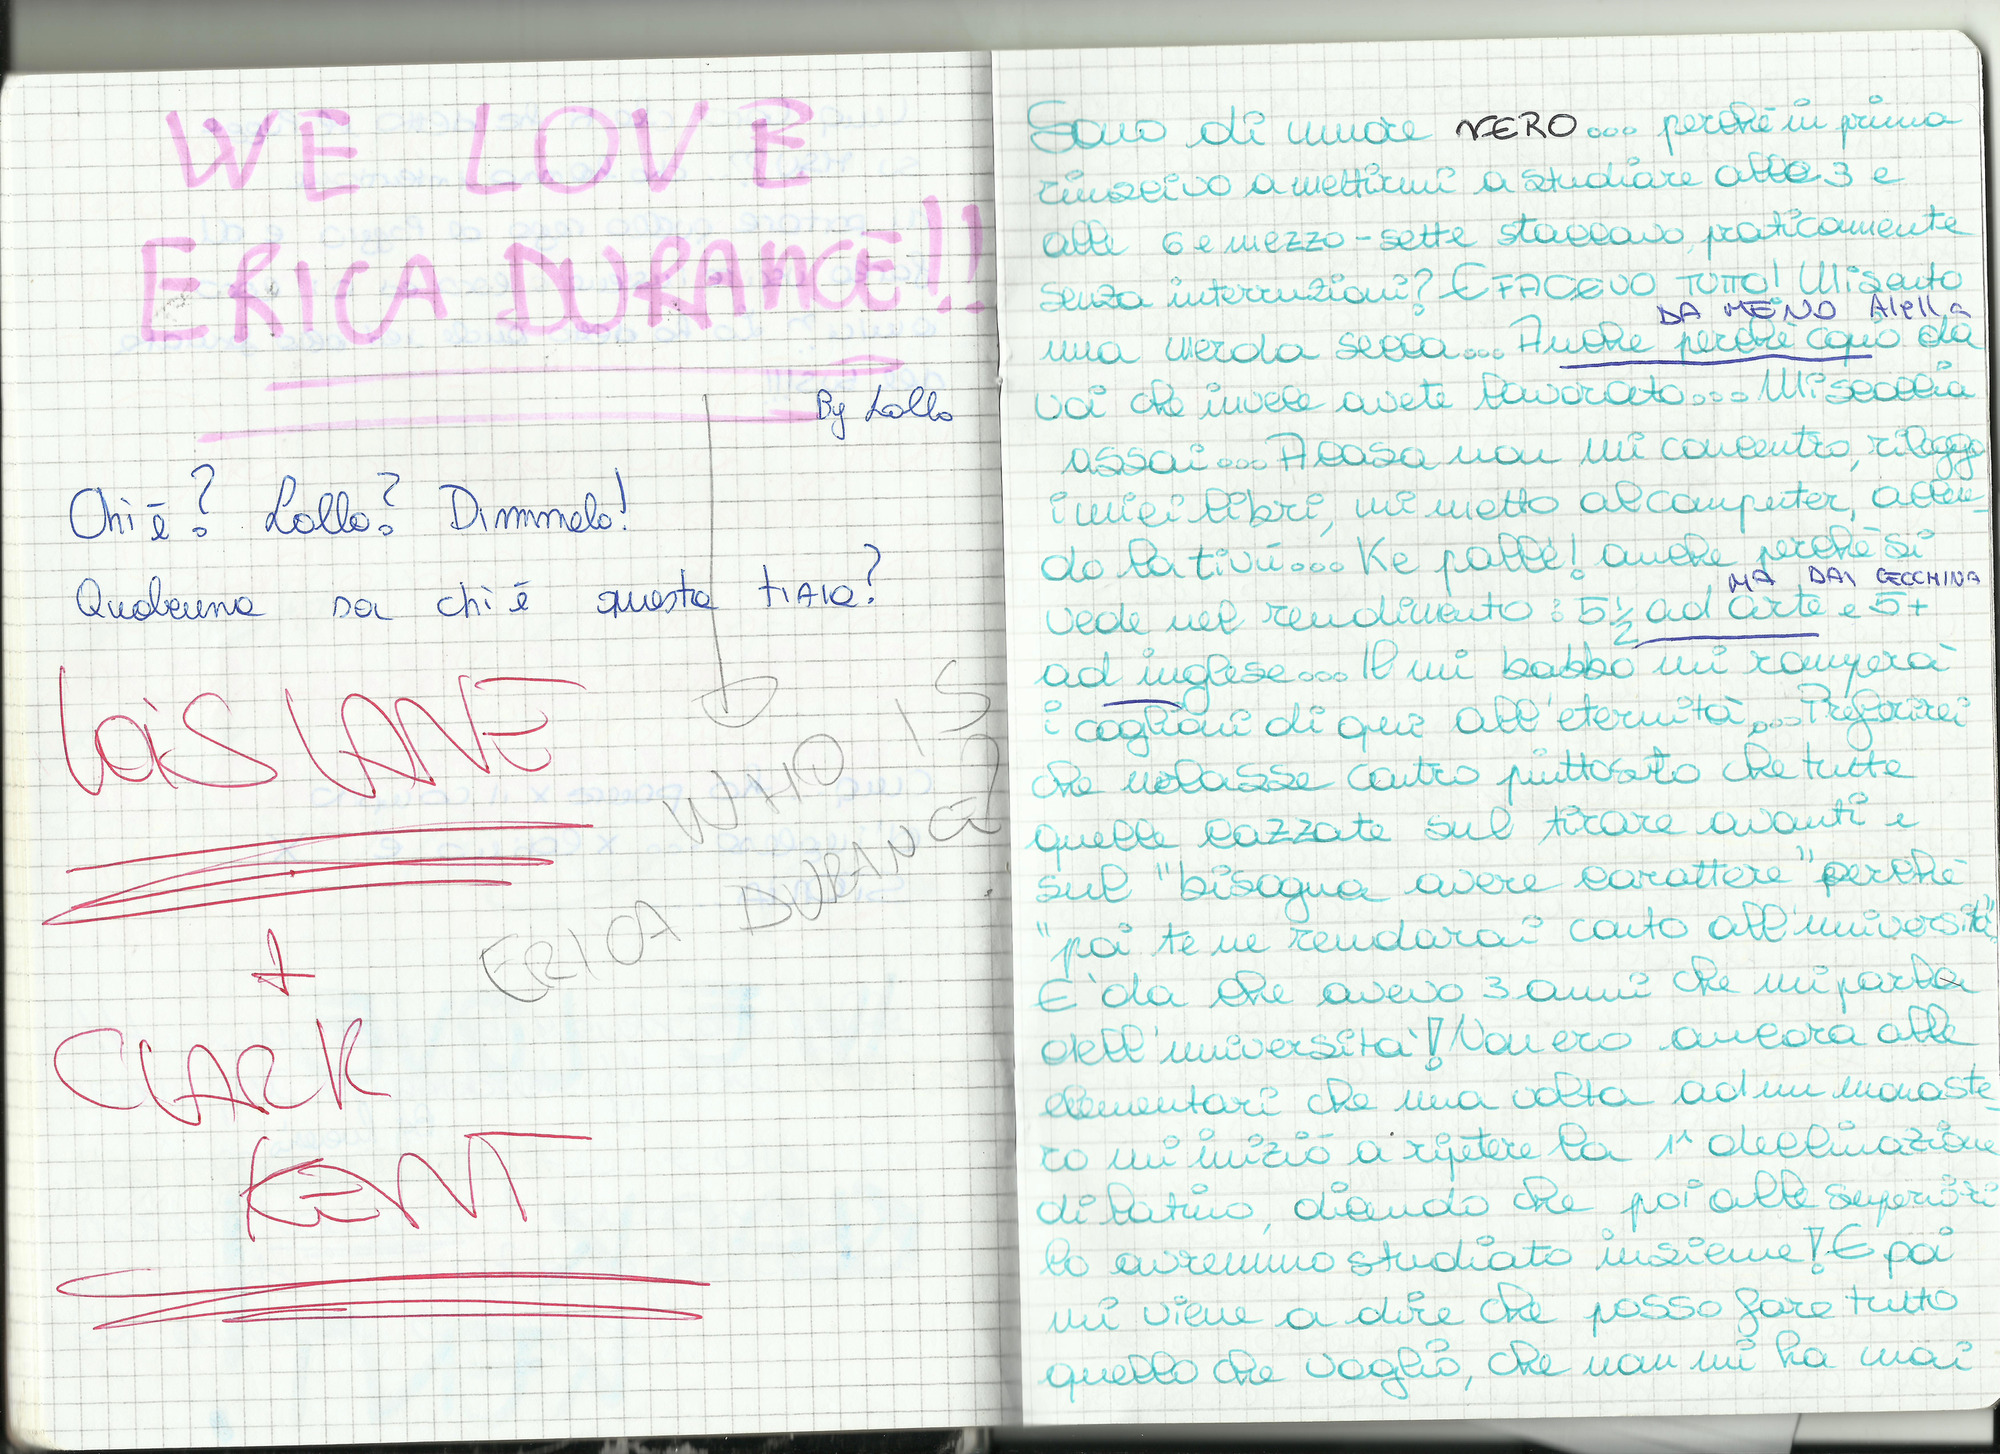 WE LOVE
ERICA DURANCE!!
By Lollo
Chi è? Lollo? Dimmmelo!
Qualcuna sa chi è questa tizia?
LOIS LANE
+
CLARK
KENT
WHO IS
ERICA DURANCE?
Sono di umore NERO... perché in prima
riuscivo a mettermi a studiare alle 3 e
alle 6 e mezzo - sette staccavo, praticamente
senza interruzioni? E FACEVO TUTTO! Mi sento
DA MENO Alella
una merda secca... Anche perché copio da
voi che invece avete lavorato... Mi scoccia
assai... A casa non mi concentro, rileggo
i miei libri, mi metto al computer, accen-
do la tivù... Ke palle! anche perché si
MA DAI CECCHINA
vede nel rendimento: 5 1/2 ad arte e 5+
ad inglese... Il mi babbo mi romperà
i coglioni di qui all'eternità... Preferirei
che urlasse contro piuttosto che tutte
quelle cazzate sul tirare avanti e
sul "bisogna avere carattere" perché
"poi te ne renderai conto all'università"
E' da che avevo 3 anni che mi parla
dell'università! Non ero ancora alle
elementari che una volta ad un monaste-
ro mi iniziò a ripetere la 1^ declinazione
di latino, dicendo che poi alle superiori
lo avremmo studiato insieme! E poi
mi viene a dire che posso fare tutto
quello che voglio, che non mi ha mai